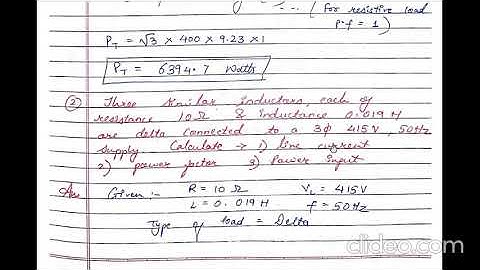 (for resistive load
p.f = 1)
P_T = √3 × 400 × 9.23 × 1
P_T = 6394.7 Watts
② Three similar inductors, each of
resistance 10 Ω & inductance 0.019 H
are delta connected to a 3φ 415V, 50Hz
supply. Calculate → 1) line current
2) power factor 3) Power input
Ans Given :- R = 10 Ω V_L = 415V
L = 0.019 H f = 50Hz
Type of load = Delta
clideo.com